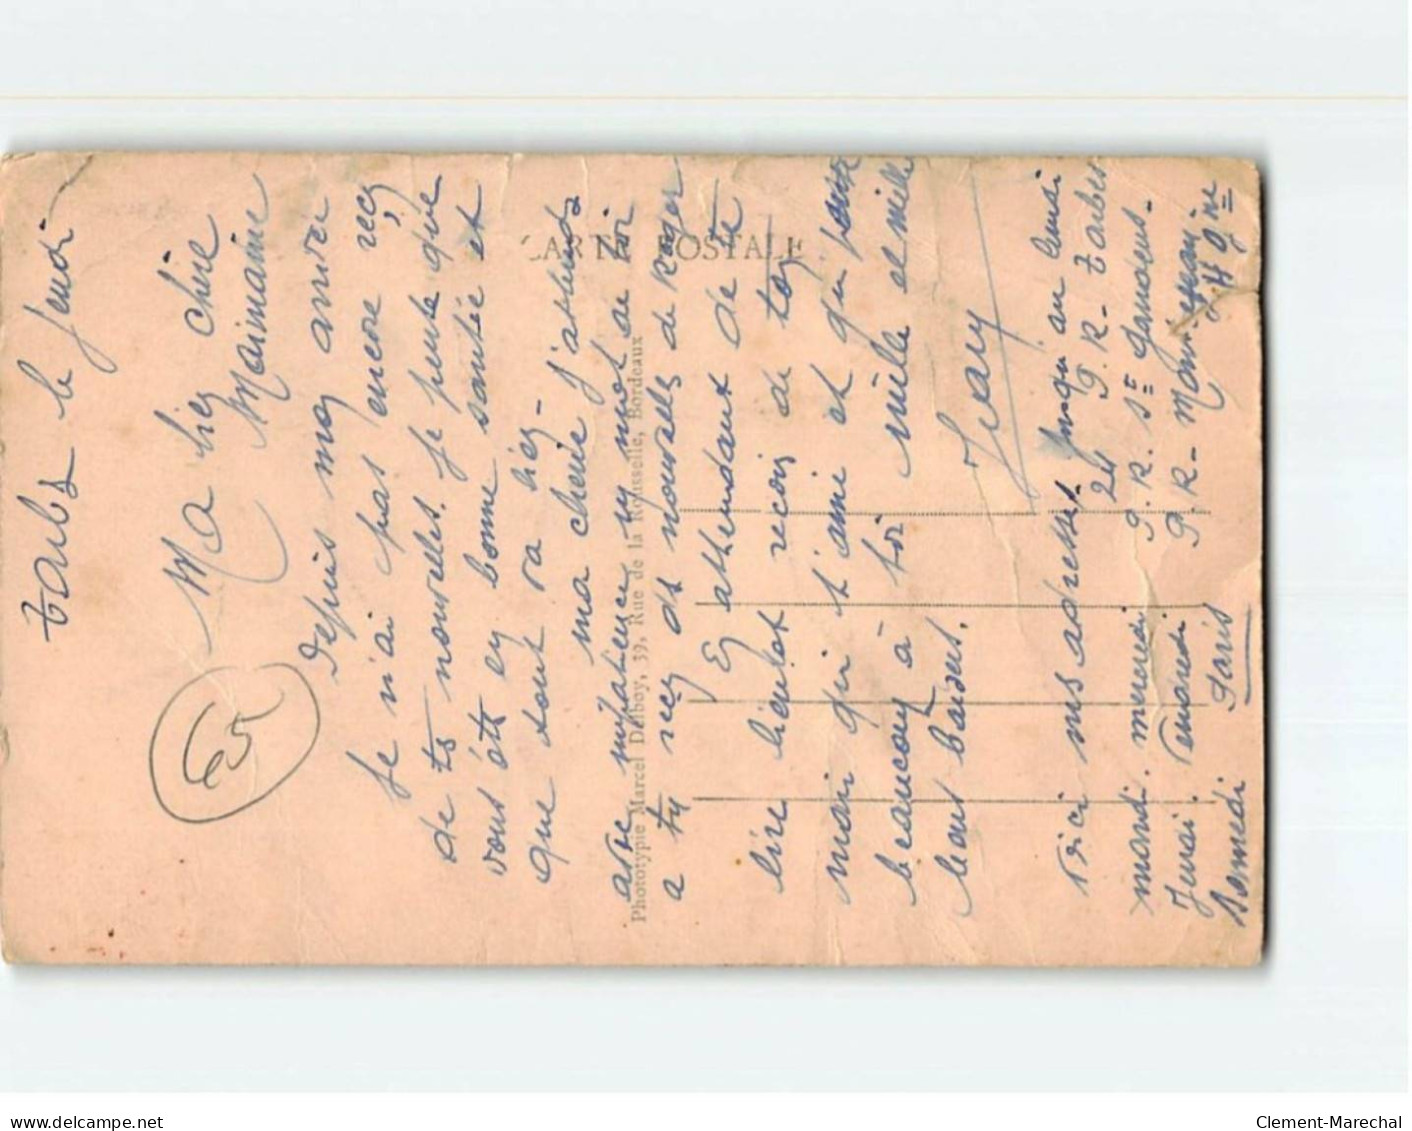 Tarbes le Jeudi
Ma bien chère
Mainmaine
65
Depuis mon arrivée
je n'ai pas encore reçu
de tes nouvelles. je pense que
vous êtes en bonne santée et
que tout va bien -
ma cherie j'attends
avec impatience un mot de toi
a tu reçu de nouvelles de Roger
En attendant de te
lire bientot recoi de ton
mari qui t'aime et qui pense
beaucoup à toi mille et mille
bons baisers.
Jean
Voici mes adresses jusqu'au lundi
24 P. R- Tarbes
mardi. mercredi P. R. St Gaudens-
Jeudi. Vendredi P. R-
Samedi Paris
CARTE POSTALE
Phototypie Marcel Delboy, 39, Rue de la Rousselle, Bordeaux
www.delcampe.net
Clement-Marechal